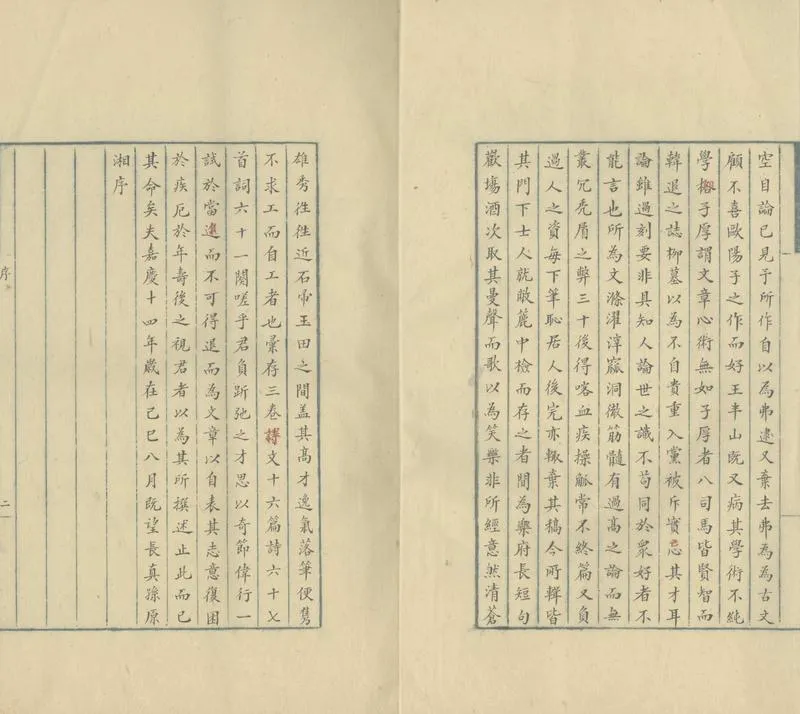 空目論已見予所作自以為弗逮又棄去弗為為古文
顧不喜歐陽子之作而好王半山既又病其學術不純
學柳子厚謂文章心術無如子厚者八司馬皆賢智而
韓退之誌柳墓以為不自貴重入黨被斥實忌其才耳
論雖過刻要非具知人論世之識不苟同於衆好者不
能言也所為文滌濯淳竄洞微筋髓有過高之論而無
叢冗禿屑之弊三十後得咯血疾操觚常不終篇又負
過人之資每下筆恥居人後完亦輒棄其稿今所輯皆
其門下士人就敝簏中檢而存之者間為樂府長短句
歡場酒次取其曼聲而歌以為笑樂非所經意然清蒼
雄秀往往近石帚玉田之間蓋其高才逸氣落筆便雋
不求工而自工者也彙存三卷得文十六篇詩六十七
首詞六十一闋嗟乎君負跅弛之才思以奇節偉行一
試於當途而不可得退而為文章以自表其志意復困
於疾厄於年壽後之視君者以為其所撰述止此而已
其命矣夫嘉慶十四年歲在己巳八月既望長真孫原
湘序
序
二